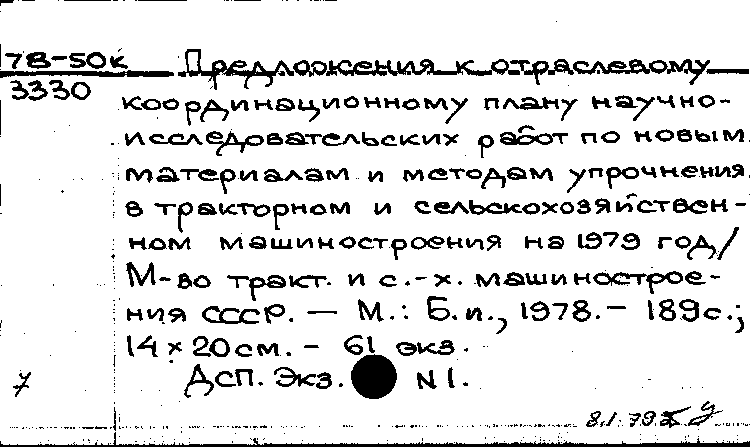 78-50к Предложения к отраслевому
3330 координационному плану научно-
исследовательских работ по новым
материалам и методам упрочнения
в тракторном и сельскохозяйствен-
ном машиностроения на 1979 год/
М-во тракт. и с.-х. машинострое-
ния СССР. — М.: Б.и., 1978.- 189с.;
14 × 20см. - 61 экз.
7 Дсп. Экз. N 1.
8.1.79